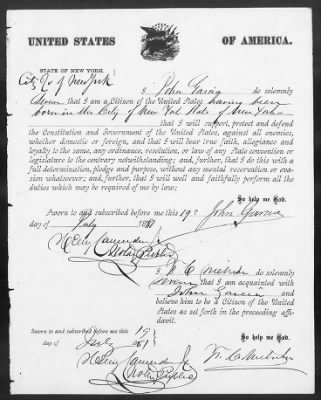 UNITED STATES OF AMERICA.
STATE OF NEW YORK.
City & Co of New York
I John Garcia do solemnly
swear that I am a Citizen of the United States having been
born in the City of New York State of New York
that I will support, protect and defend
the Constitution and Government of the United States, against all enemies,
whether domestic or foreign, and that I will bear true faith, allegiance and
loyalty to the same, any ordinance, resolution, or law of any State convention or
legislature to the contrary notwithstanding; and, further, that I do this with a
full determination, pledge and purpose, without any mental reservation or eva-
sion whatsoever; and, further, that I will well and faithfully perform all the
duties which may be required of me by law;
So help me God.
Sworn to and subscribed before me this 19
day of July 1881
John Garcia
Notary Public
I do solemnly
swear that I am acquainted with
John Garcia and
believe him to be a Citizen of the United
States as set forth in the preceding affi-
davit.
Sworn to and subscribed before me this 19
day of July 1881
So help me God.
Notary Public